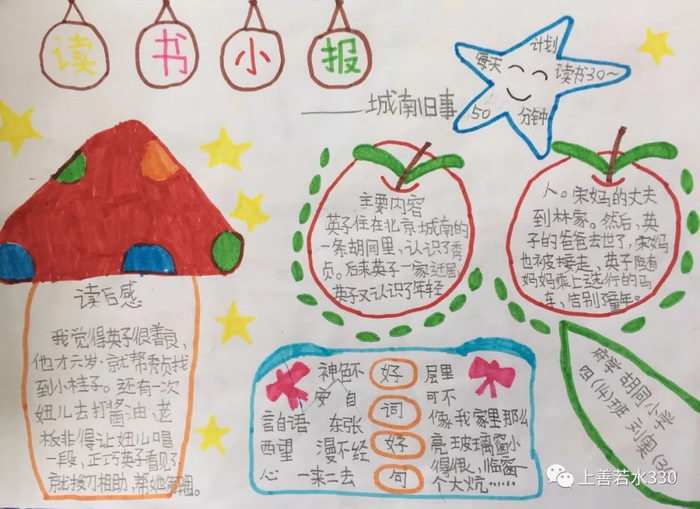 读书小报
——城南旧事
计划
每天
读书30~
50
分钟
主要内容
英子住在北京城南的
一条胡同里,认识了秀
贞。后来英子一家迁居,
英子又认识了年轻
人。宋妈的丈夫
到林家。然后,英
子的爸爸去世了,宋妈
也被接走,英子随着
妈妈乘上远行的马
车,告别童年。
读后感
我觉得英子很善良,
他才六岁,就帮秀贞找
到小桂子。还有一次
妞儿去打酱油,送
板非得让妞儿唱
一段,正巧英子看见了
就拔刀相助,帮她
好词好句
神色不
安 自
言自语 东张
西望 漫不经
心 一来二去
屋里
可不
像我家里那么
亮,玻璃窗小
得很,临窗一
个大炕……
府学胡同小学
四(14)班 刘奥
上善若水330